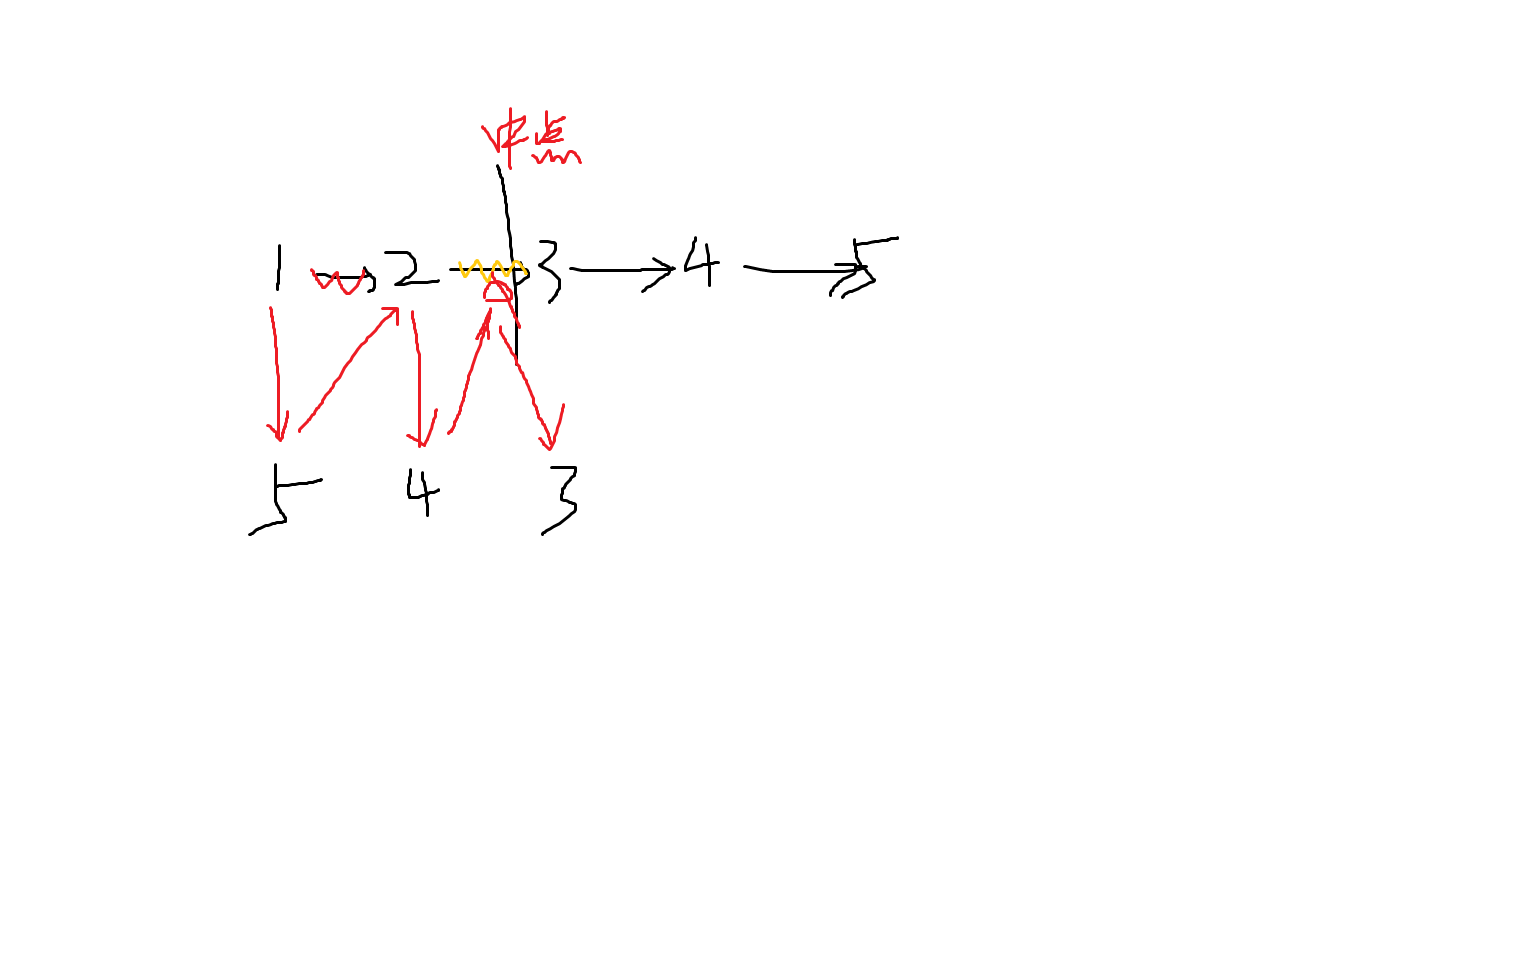 中点
1 → 2 → 3 → 4 → 5
5 4 3